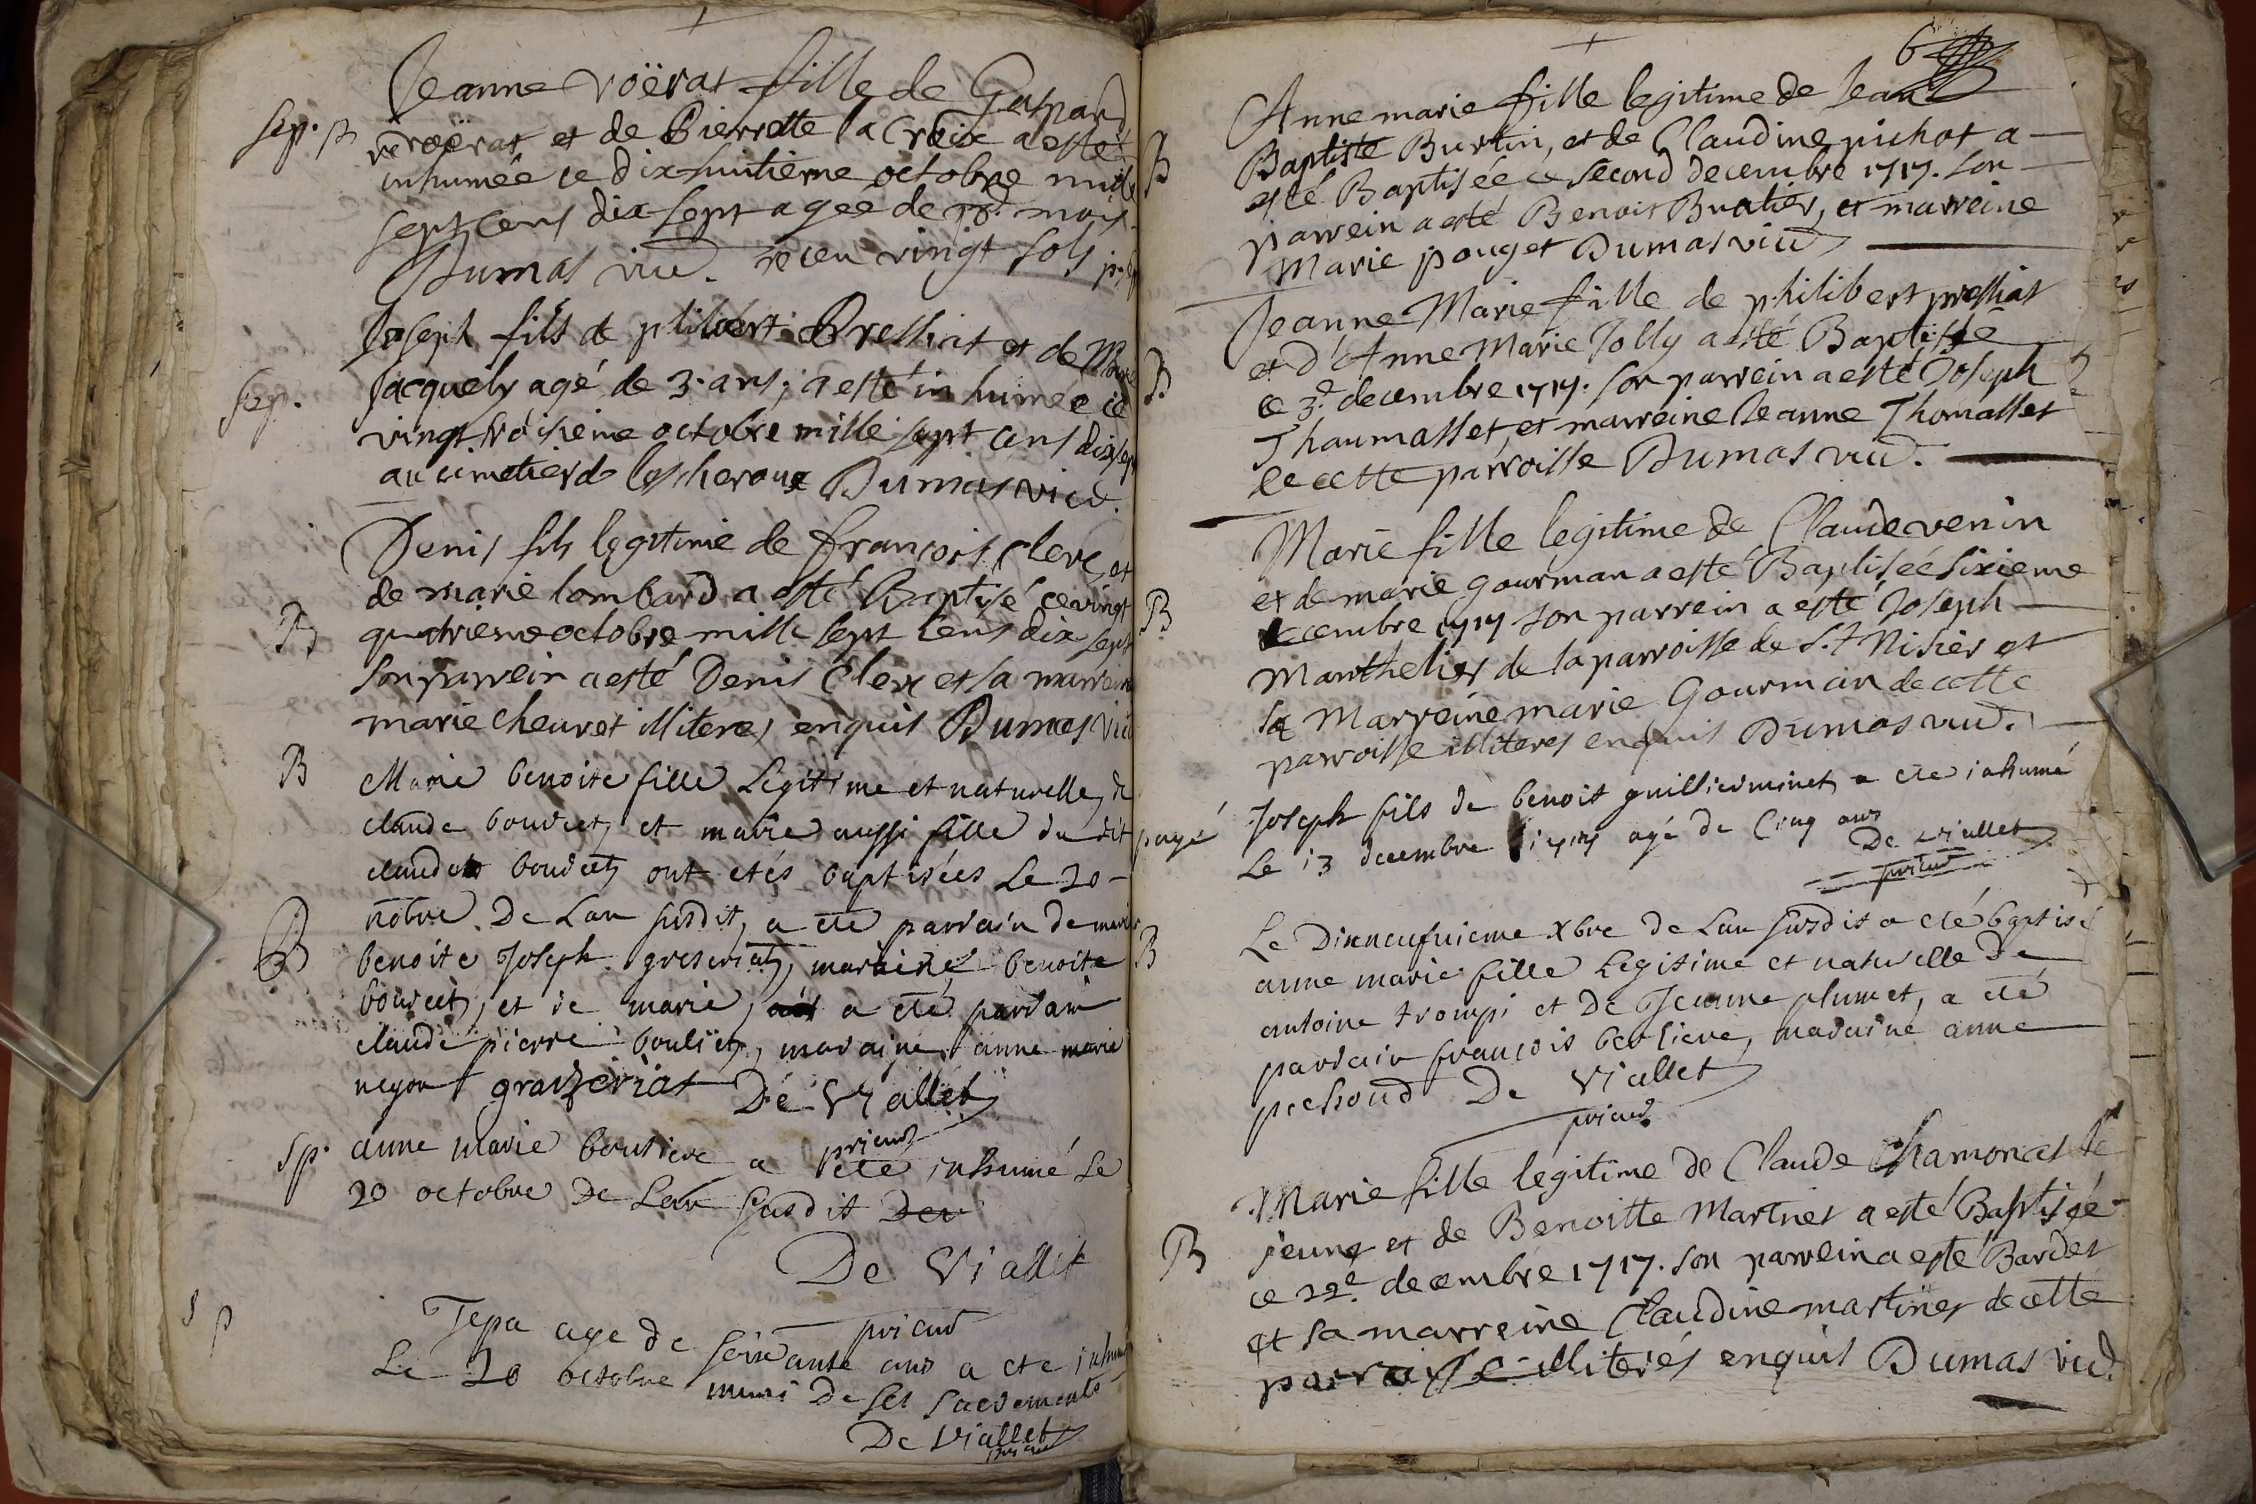 Jeanne voërat fille de Gaspard
sep. p
voërat et de Pierrette la Croix a esté
inhumée ce dix-huitieme octobre mille
sept cens dix sept agée de mois
Dumas vic. receu vingt sols
Joseph fils de philibert Presliat et de Marie
Jacquely agé de 3. ans, a esté inhumé ce
sep.
vingt troisieme octobre mille sept cens dix sept
au cimetier de lescheroux Dumas vic.
Denis fils legitime de françois Clerc, et
de marie lombard a esté Baptisé ce vingt
B
quatrieme octobre mille sept cens dix sept
son parrein a esté Denis Clerc et sa marreine
marie cheuret illiteres enquis Dumas vic
B
Marie benoite fille Legitime et naturelle de
claude bouvet, et marie aussi fille du dit
claude bouvet ont etés baptisées Le 20
nobre De Lan susdit, a eté parrain de marie
B
benoite Joseph greseriat, maraine benoite
bouvet, et de marie, a eté parrain
claude pierre bouliet, maraine anne marie
neyon graizeriat De Viallet
prieur
sp.
anne marie boutiere a eté inhumé Le
20 octobre De Lan susdit
De Viallet
prieur
s p
Jepa age de soixante ans a ete inhumé
Le 20 octobre muni De ses sacrements
De Viallet
prieur
6
Anne marie fille legitime de Jean
B
Baptiste Burtin, et de Claudine pichot a
esté Baptisée ce second decembre 1717. son
parrein a esté Benoit Bualier, et marreine
Marie pouget Dumas vic
Jeanne Marie fille de philibert presliat
et d'Anne Marie Jolly a esté Baptisée
B
ce 3e. decembre 1717. son parrein a esté Joseph
Thaumasset, et marreine Jeanne Thomasset
de cette parroisse Dumas vic.
Marie fille legitime de Claude venin
et de marie gourman a esté Baptisée sixieme
B
decembre 1717 son parrein a esté Joseph
Manthelier de la parroisse de St Nisier et
sa Marreine marie Gourman de cette
parroisse illiteres enquis Dumas vic.
payé
Joseph fils de benoit guillierminet a eté inhumé
Le 13 decembre 1717 agé de Cinq ans
De Viallet
prieur
B
Le Dixneufvieme xbre de Lan susdit a eté baptisé
anne marie fille Legitime et naturelle De
antoine trompi et De Jeanne plumet, a eté
parrain françois berliere, maraine anne
pechoud De Viallet
prieur
Marie fille legitime de Claude Chamonal le
B
jeune et de Benoitte Martinet a esté Baptisée
ce 22e. decembre 1717. son parrein a esté Bardet
et sa marreine Claudine martinet de cette
parroisse illiterés enquis Dumas vic.